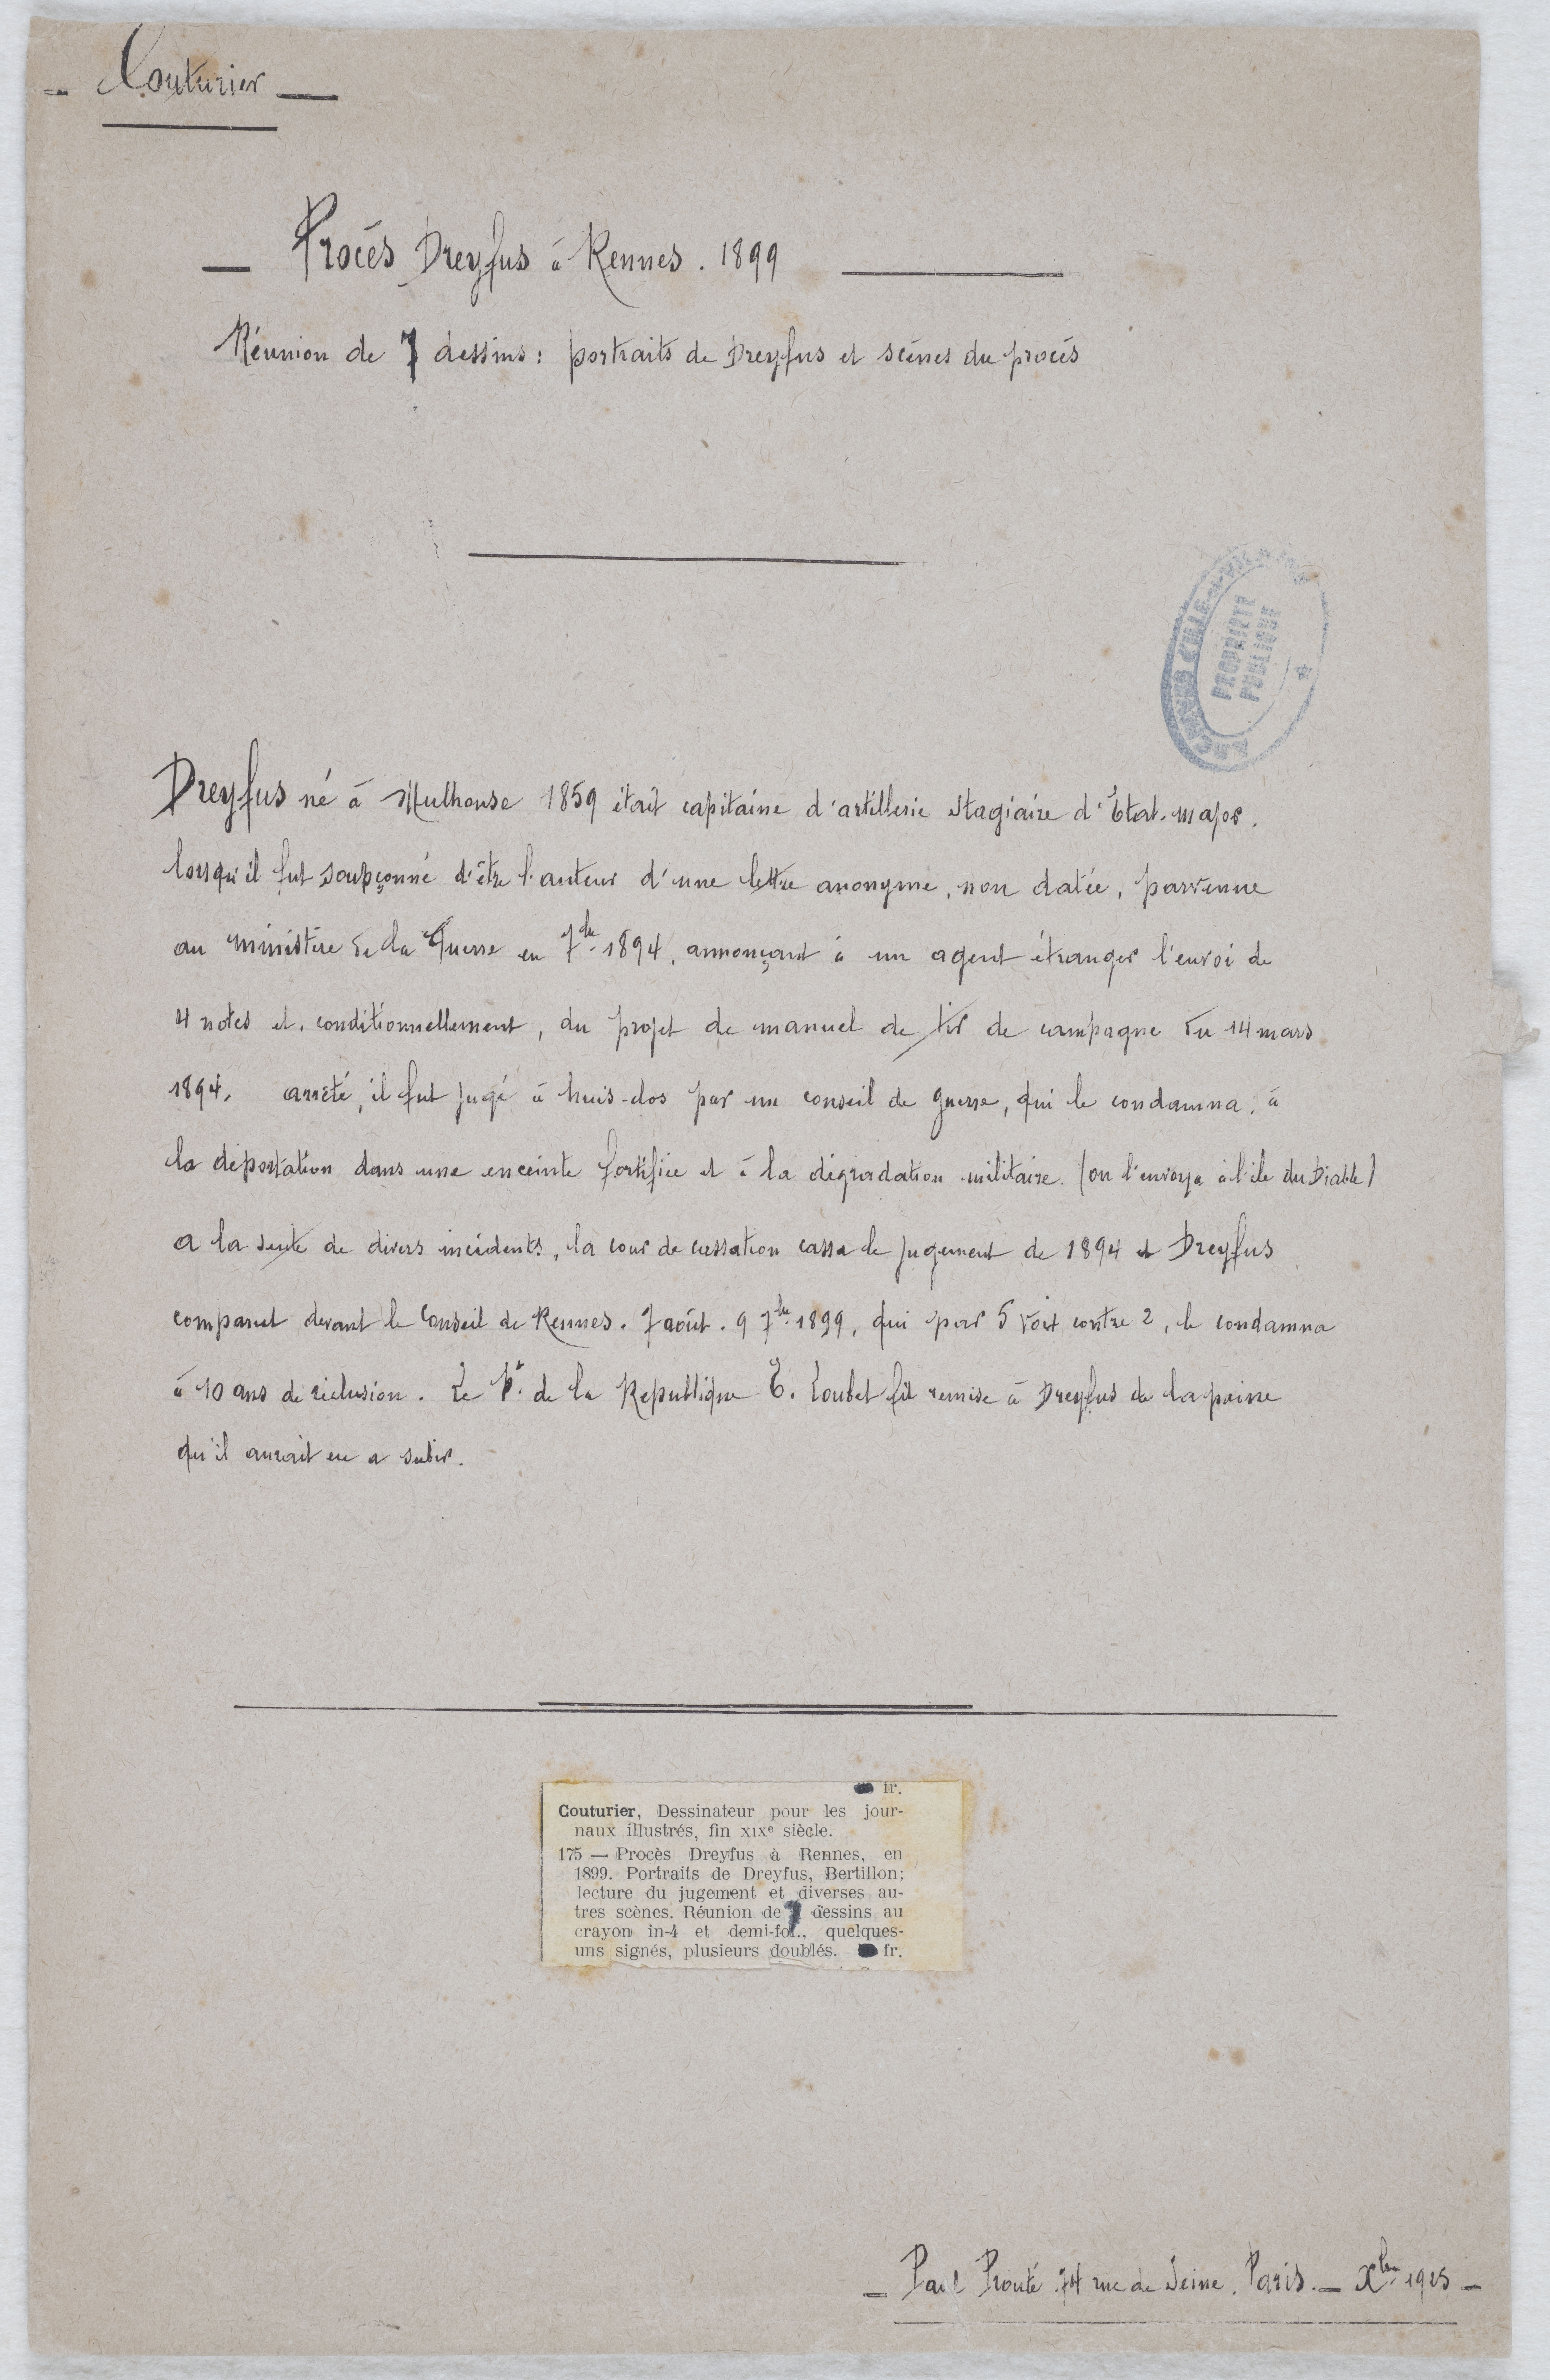 - Couturier —
— Procès Dreyfus à Rennes. 1899 —
Réunion de 7 dessins : portraits de Dreyfus et scènes du procès
PROPRIÉTÉ
PUBLIQUE
Dreyfus né à Mulhouse 1859 était capitaine d'artillerie stagiaire d'Etat-major.
lorsqu'il fut soupçonné d'être l'auteur d'une lettre anonyme, non datée, parvenue
au ministère de la Guerre en 7bre 1894, annonçant à un agent étranger l'envoi de
4 notes et, conditionnellement, du projet de manuel de tir de campagne du 14 mars
1894. arrêté, il fut jugé à huis-clos par un conseil de guerre, qui le condamna, à
la déportation dans une enceinte fortifiée et à la dégradation militaire. (on l'envoya à l'ile du Diable)
a la suite de divers incidents, la cour de cassation cassa le jugement de 1894 et Dreyfus
comparut devant le Conseil de Rennes. 7 août. 9 7bre 1899, qui par 5 voix contre 2, le condamna
à 10 ans de réclusion. Le Pt. de la Republique E. Loubet fit remise à Dreyfus de la peine
qu'il aurait eu a subir.
fr.
Couturier, Dessinateur pour les jour-
naux illustrés, fin XIXe siècle.
175 — Procès Dreyfus à Rennes, en
1899. Portraits de Dreyfus, Bertillon;
lecture du jugement et diverses au-
tres scènes. Réunion de 7 dessins au
crayon in-4 et demi-fol., quelques-
uns signés, plusieurs doublés. fr.
— Paul Prouté. 74 rue de Seine. Paris. — Xbre 1925 —